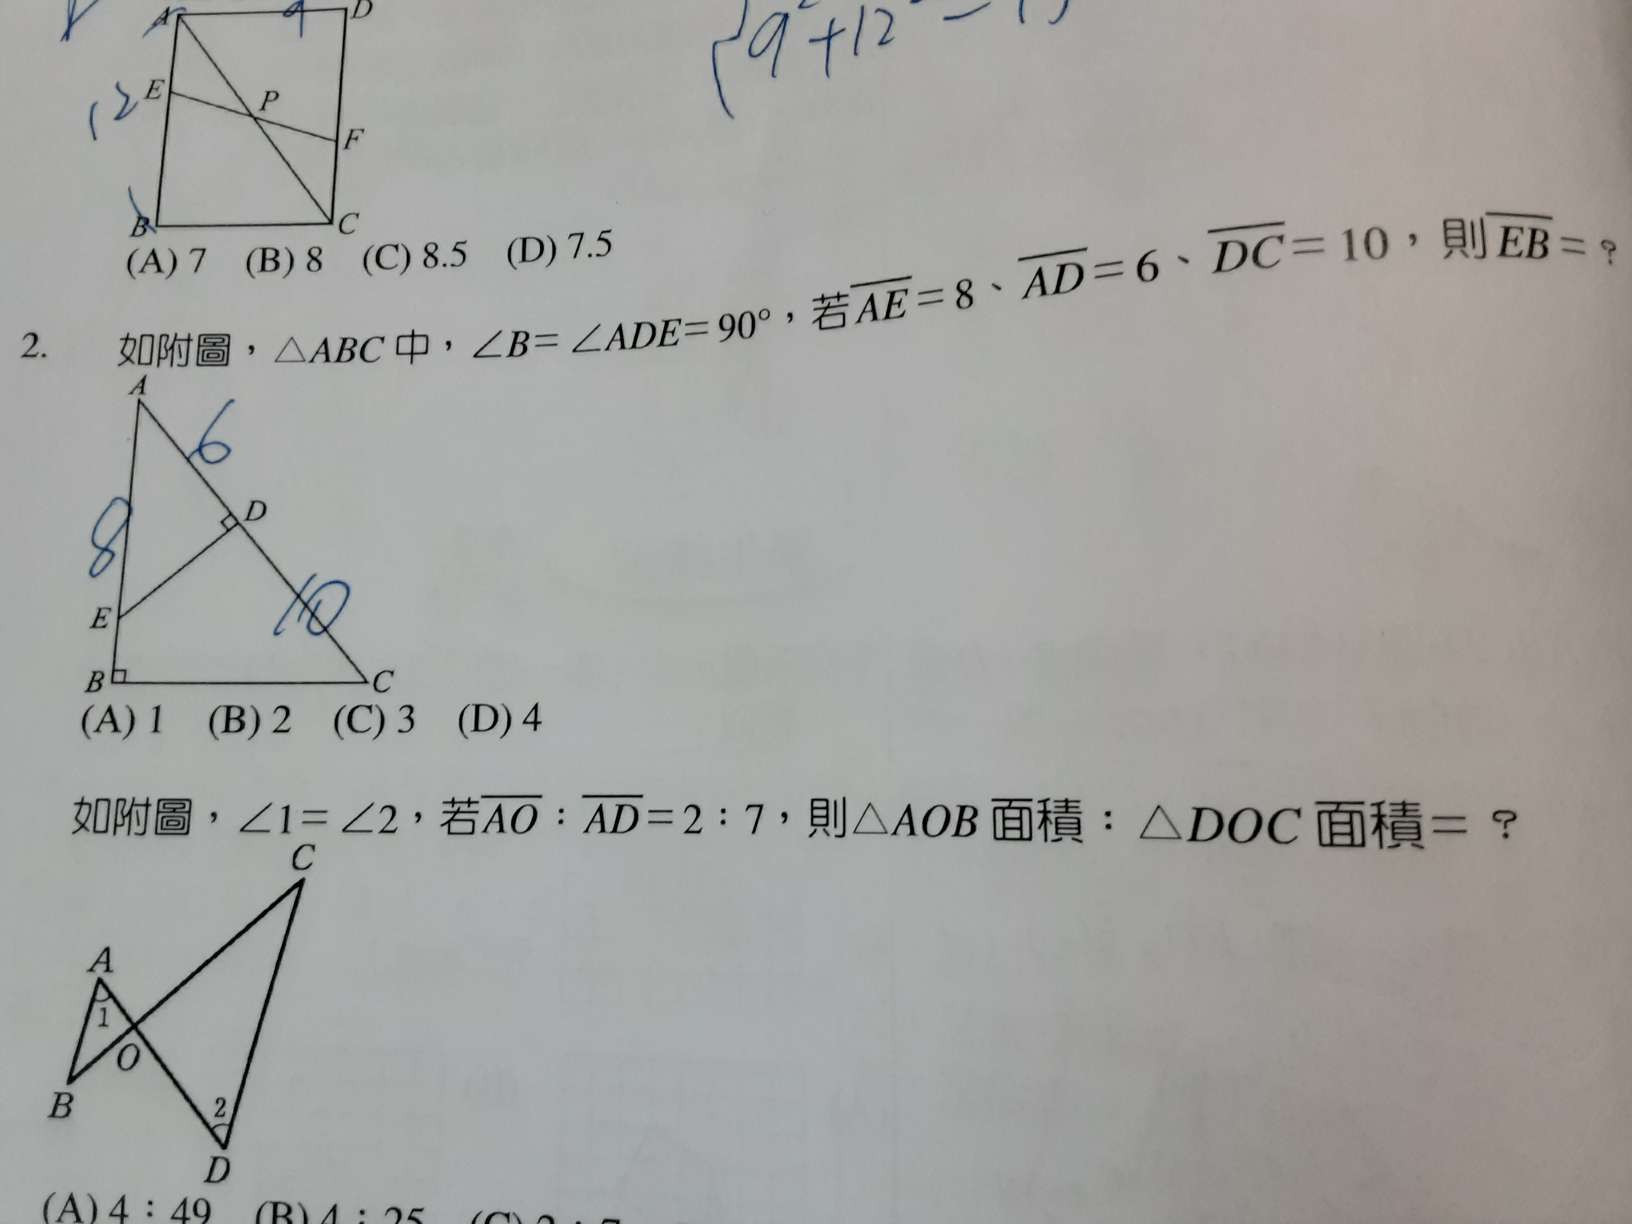 A 9 D
9² + 12² = 15
12 E P
F
B C
(A) 7 (B) 8 (C) 8.5 (D) 7.5
2. 如附圖，△ABC 中，∠B= ∠ADE= 90°，若AE = 8、AD = 6、DC = 10，則EB = ?
A
6
D
8
10
E
B C
(A) 1 (B) 2 (C) 3 (D) 4
如附圖，∠1= ∠2，若AO：AD = 2：7，則△AOB 面積：△DOC 面積= ?
C
A
1
O
B 2
D
(A) 4：49 (B) 4：25